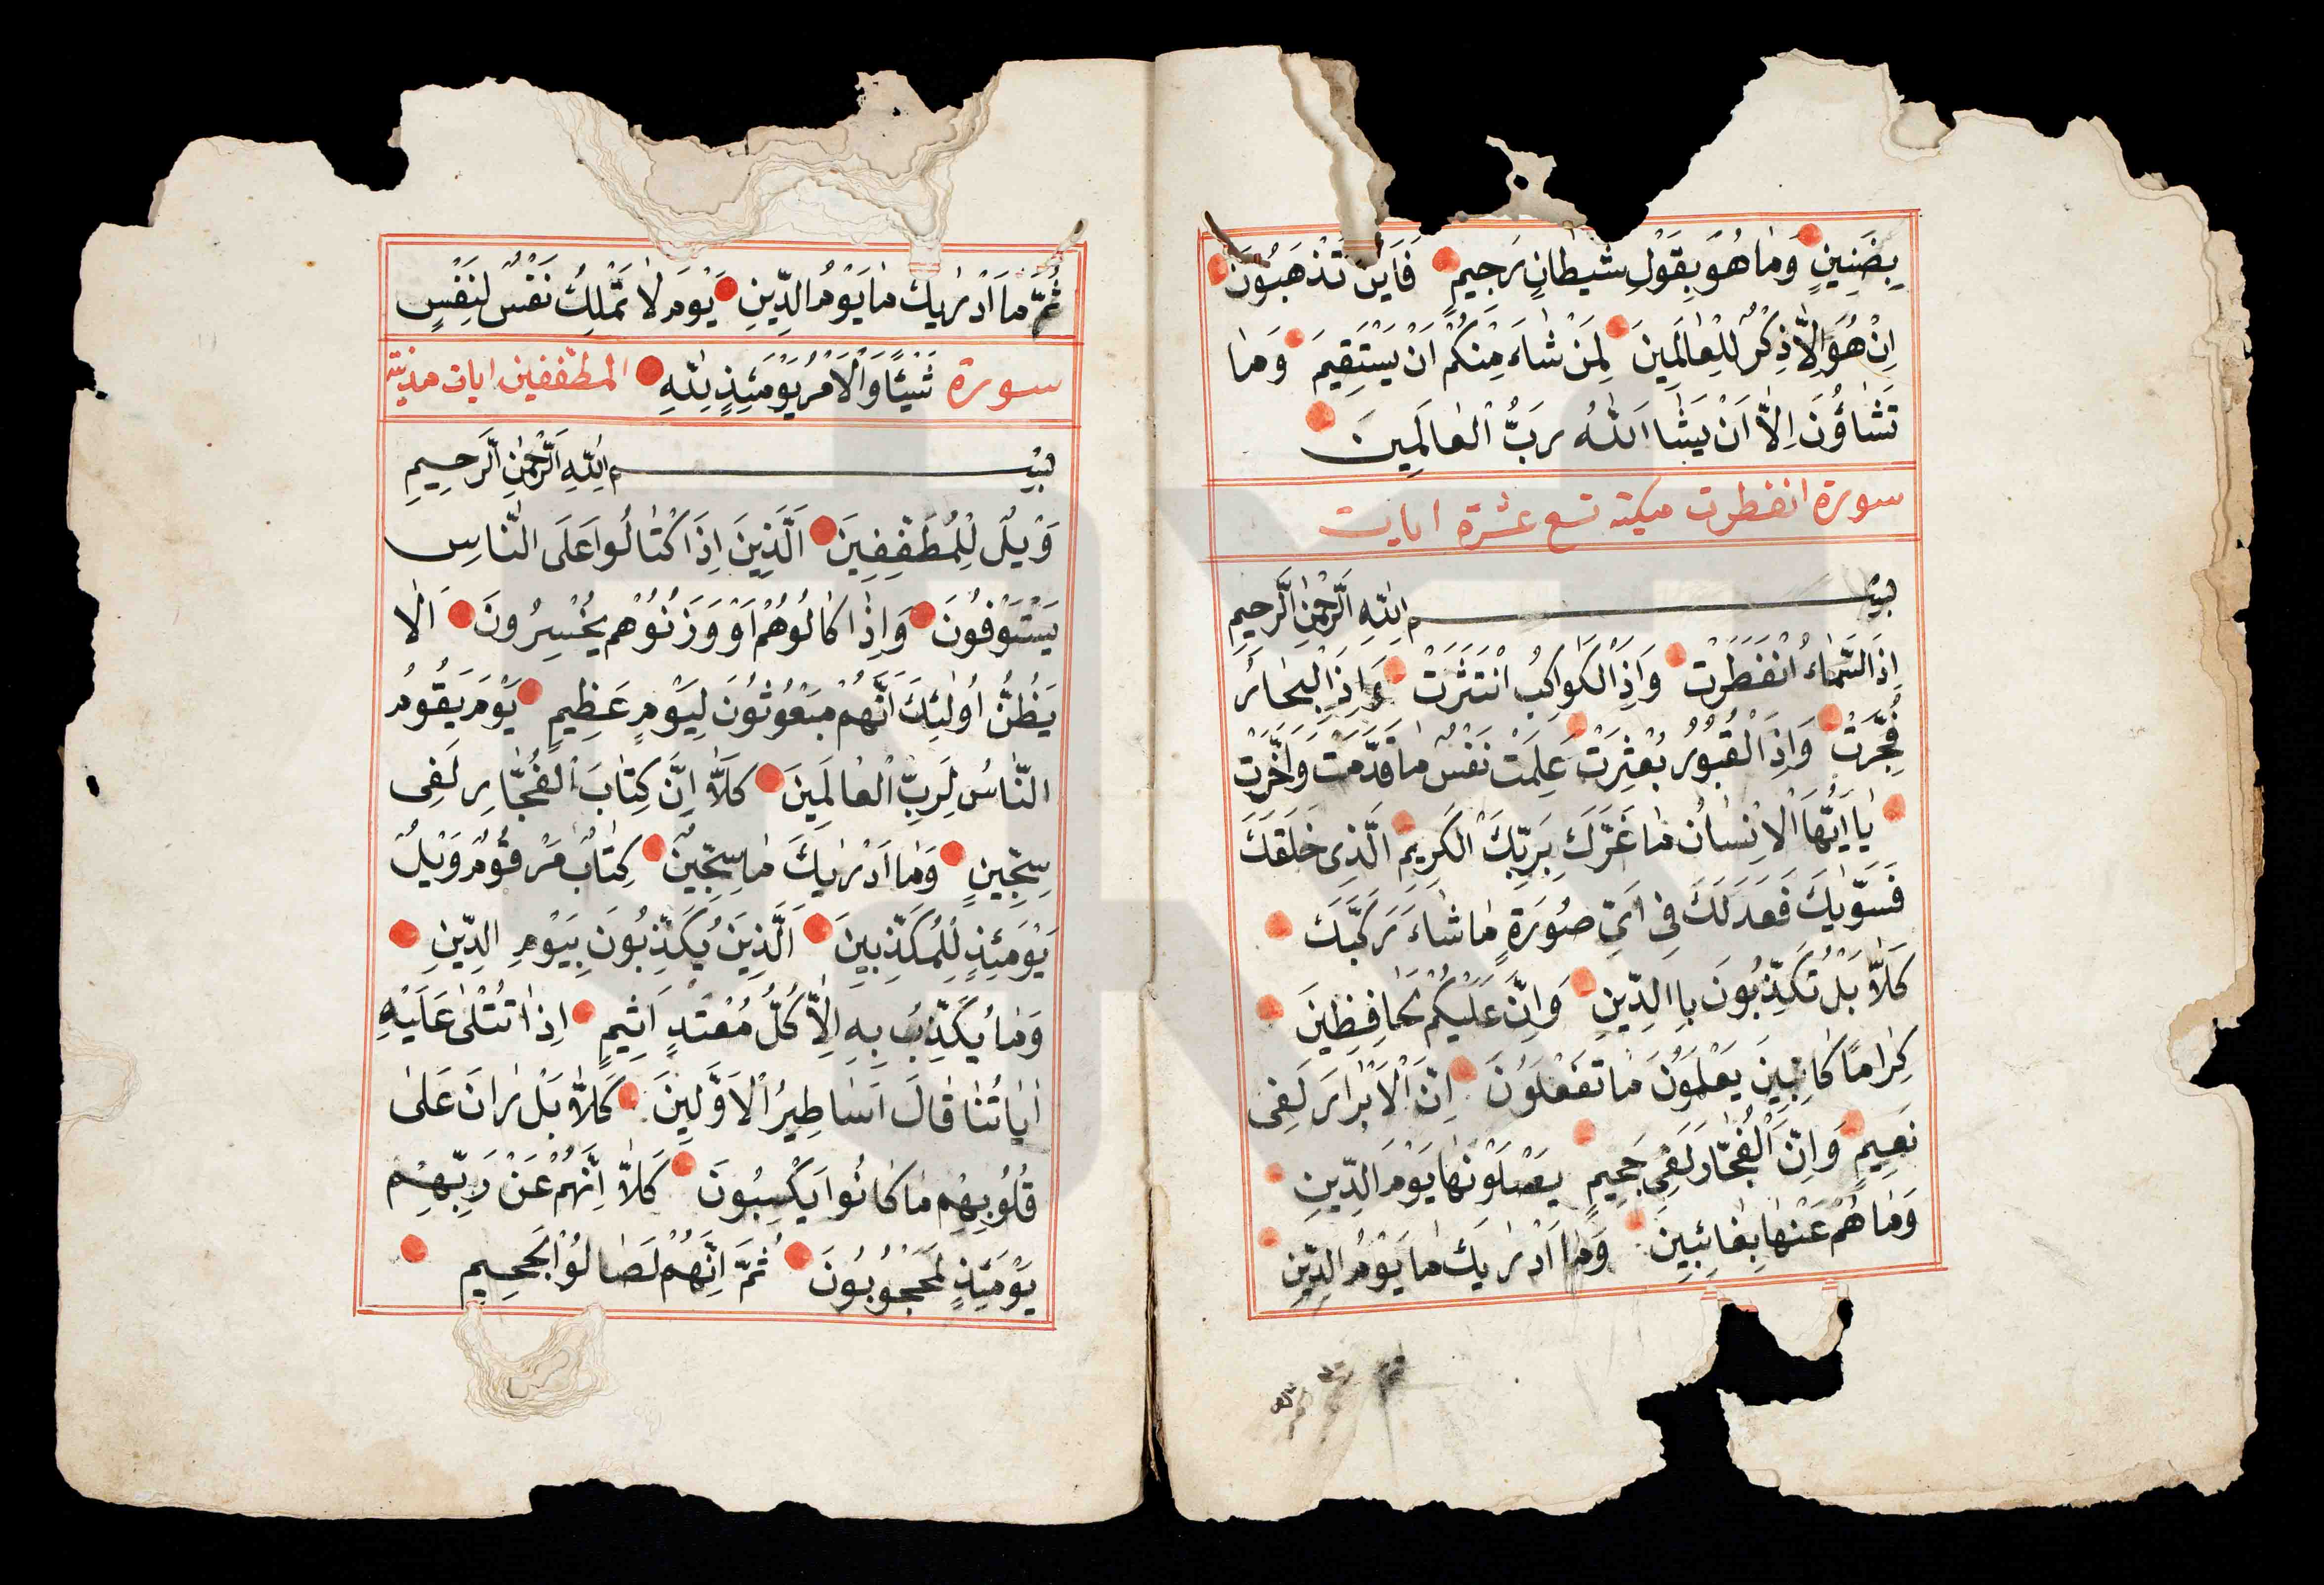 بِضَنِينٍ وَمٰا هُوَ بِقَوْلِ شَيْطانٍ رَجِيمٍ فَاَيْنَ تَذْهَبُونَ
اِنْ هُوَ اِلاّٰ ذِكْرٌ لِلْعٰالَمِينَ لِمَنْ شٰاءَ مِنْكُمْ اَنْ يَسْتَقِيمَ وَمٰا
تَشٰاؤُنَ اِلاّٰ اَنْ يَشٰاا اللّٰهُ رَبُّ الْعٰالَمِينَ
سورة انفطرت مكية تسع عشرة ايات
بِسْمِ اللّٰهِ الرَّحْمٰنِ الرَّحِيمِ
اِذَا السَّمٰاءُ انْفَطَرَتْ وَاِذَا الْكَوٰاكِبُ انْتَثَرَتْ وَاِذَا الْبِحٰارُ
فُجِّرَتْ وَاِذَا الْقُبُورُ بُعْثِرَتْ عَلِمَتْ نَفْسٌ مٰا قَدَّمَتْ وَاَخَّرَتْ
يٰا اَيُّهَا الْاِنْسٰانُ مٰا غَرَّكَ بِرَبِّكَ الْكَرِيمِ الَّذِى خَلَقَكَ
فَسَوّٰيكَ فَعَدَلَكَ فِى اَىِّ صُورَةٍ مٰا شٰاءَ رَكَّبَكَ
كَلاّٰ بَلْ تُكَذِّبُونَ بِاالدِّينِ وَاِنَّ عَلَيْكُمْ لَحٰافِظِينَ
كِرٰامًا كٰاتِبِينَ يَعْلَمُونَ مٰا تَفْعَلُونَ اِنَّ الْاَبْرٰارَ لَفِى
نَعِيمٍ وَاِنَّ الْفُجّٰارَ لَفِى جَحِيمٍ يَصْلَوْنَهٰا يَوْمَ الدِّينِ
وَمٰا هُمْ عَنْهٰا بِغٰائِبِينَ وَمٰا اَدْرٰيكَ مٰا يَوْمُ الدِّينِ
ثُمَّ مٰا اَدْرٰيكَ مٰا يَوْمُ الدِّينِ يَوْمَ لاٰ تَمْلِكُ نَفْسٌ لِنَفْسٍ
سورة شَيْئًا وَالْاَمْرُ يَوْمَئِذٍ لِلّٰهِ المطففين ايات مدنية
بِسْمِ اللّٰهِ الرَّحْمٰنِ الرَّحِيمِ
وَيْلٌ لِلْمُطَفِّفِينَ اَلَّذِينَ اِذَا اكْتٰالُوا عَلَى النّٰاسِ
يَسْتَوْفُونَ وَاِذٰا كٰالُوهُمْ اَوْ وَزَنُوهُمْ يُخْسِرُونَ اَلاٰ
يَظُنُّ اُولٰئِكَ اَنَّهُمْ مَبْعُوثُونَ لِيَوْمٍ عَظِيمٍ يَوْمَ يَقُومُ
النّٰاسُ لِرَبِّ الْعٰالَمِينَ كَلاّٰ اِنَّ كِتٰابَ الْفُجّٰارِ لَفِى
سِجِّينٍ وَمٰا اَدْرٰيكَ مٰا سِجِّينٌ كِتٰابٌ مَرْقُومٌ وَيْلٌ
يَوْمَئِذٍ لِلْمُكَذِّبِينَ اَلَّذِينَ يُكَذِّبُونَ بِيَوْمِ الدِّينِ
وَمٰا يُكَذِّبُ بِهِ اِلاّٰ كُلُّ مُعْتَدٍ اَثِيمٍ اِذٰا تُتْلٰى عَلَيْهِ
اٰيٰاتُنٰا قٰالَ اَسٰاطِيرُ الْاَوَّلِينَ كَلاّٰ بَلْ رٰانَ عَلٰى
قُلُوبِهِمْ مٰا كٰانُوا يَكْسِبُونَ كَلاّٰ اِنَّهُمْ عَنْ رَبِّهِمْ
يَوْمَئِذٍ لَمَحْجُوبُونَ ثُمَّ اِنَّهُمْ لَصٰالُوا الْجَحِيمِ